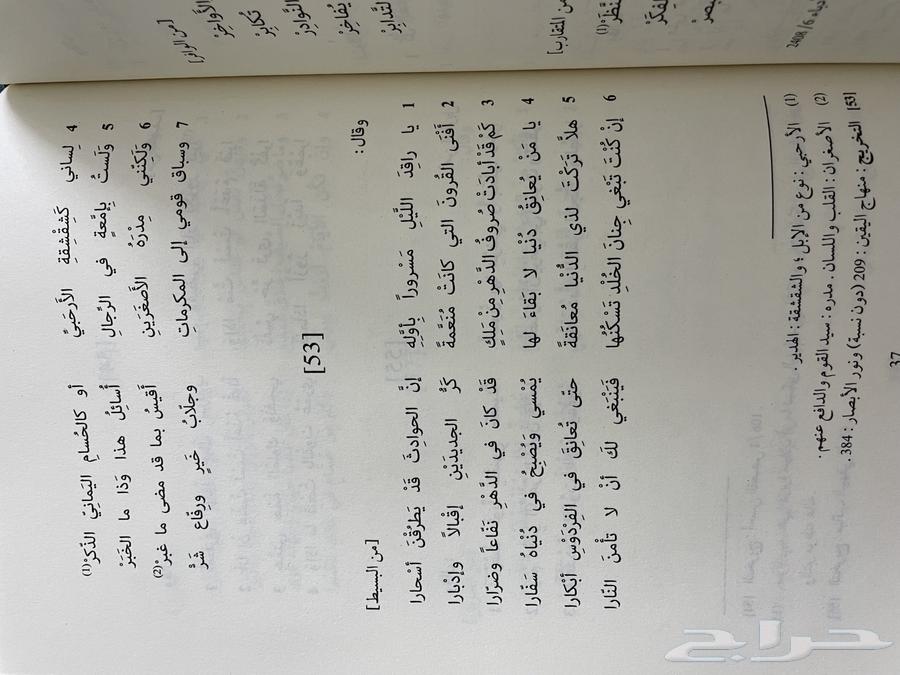 [من الوافر]
الأَواخِرْ
تُكابِرْ
النَّوادِرْ
يُفاخِرْ
التَّدابُرْ
من المتقارب]
4 لِساني كَشِقْشِقةِ الأَرْحَبيِّ أو كالحُسامِ اليَمانِيّ الذَّكَرْ(1)
5 وَلَستُ بإمَّعةٍ في الرِّجالِ أُسائِلُ هذا وَذا ما الخَبَرْ
6 وَلكِنَّني مِدْرَهُ الأَصْغَرَينِ أَقيسُ بما قد مضى ما غبَرْ(2)
7 وسباق قومي إلى المكرماتِ وجلّابُ خَيرٍ ورقّاع شَرّْ
[53]
وقال : [من البسيط]
1 يا راقِدَ اللَّيْلِ مَسْروراً بأوَّلِهِ إنَّ الحوادِثَ قَدْ يَطرُقْنَ أَسْحارا
2 أَفْنَى القُرونَ التي كانَتْ مُنَعَّمةً كَرُّ الجديدَيْنِ إقْبالاً وإدْبارا
3 كَمْ قَدْ أَبادَتْ صُروفُ الدَّهْرِ مِنْ مَلِكٍ قَدْ كانَ في الدَّهْرِ نَفّاعاً وضَرّارا
4 يا مَنْ يُعانِقُ دُنْيا لا بَقاءَ لها يُمْسي وَيُصْبِحُ في دُنْياهُ سَفّارا
5 هلاَّ تَرَكْتَ لذي الدُّنْيا مُعانَقةً حتّى تُعانِقَ في الفِرْدَوْسِ أَبْكارا
6 إنْ كُنْتَ تَبْغي جِنانَ الخُلْدِ تَسْكُنُها فَيَنْبَغي لكَ أنْ لا تأمنَ النّارا
(1) الأرحبي : نوع من الإبل ؛ والشقشقة : الهدير .
(2) الأصغران : القلب واللسان . مدره : سيد القوم والدافع عنهم .
[53] التخريج : منهاج اليقين : 209 (دون نسبة) ونور الأبصار : 384 .
37
حراج